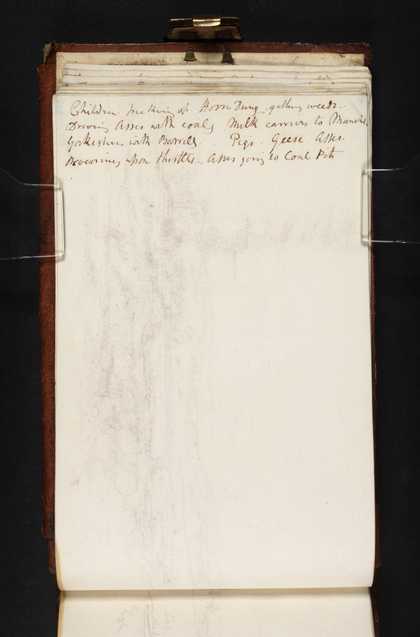 Children picking up Horse Dung. gathering weeds.
Driving Asses with coals Milk carriers to Manche
Yorkshire with Barrels. Pigs. Geese Asses
Browsing upon thistles. Asses going to Coal Pits